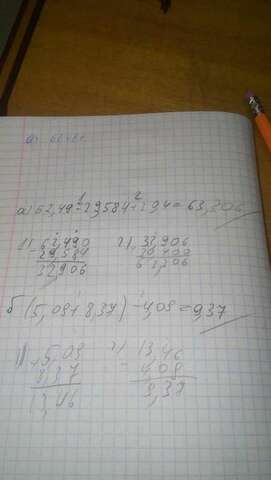 а) 62,49 - 29,584 + 2,94 = 63,306
1) 62,490 2) 32,906
- 29,584 30,400
32,906 63,306
б) (5,09 + 8,37) - 4,09 = 9,37
1) 5,09 2) 13,46
8,37 - 4,09
13,46 9,37